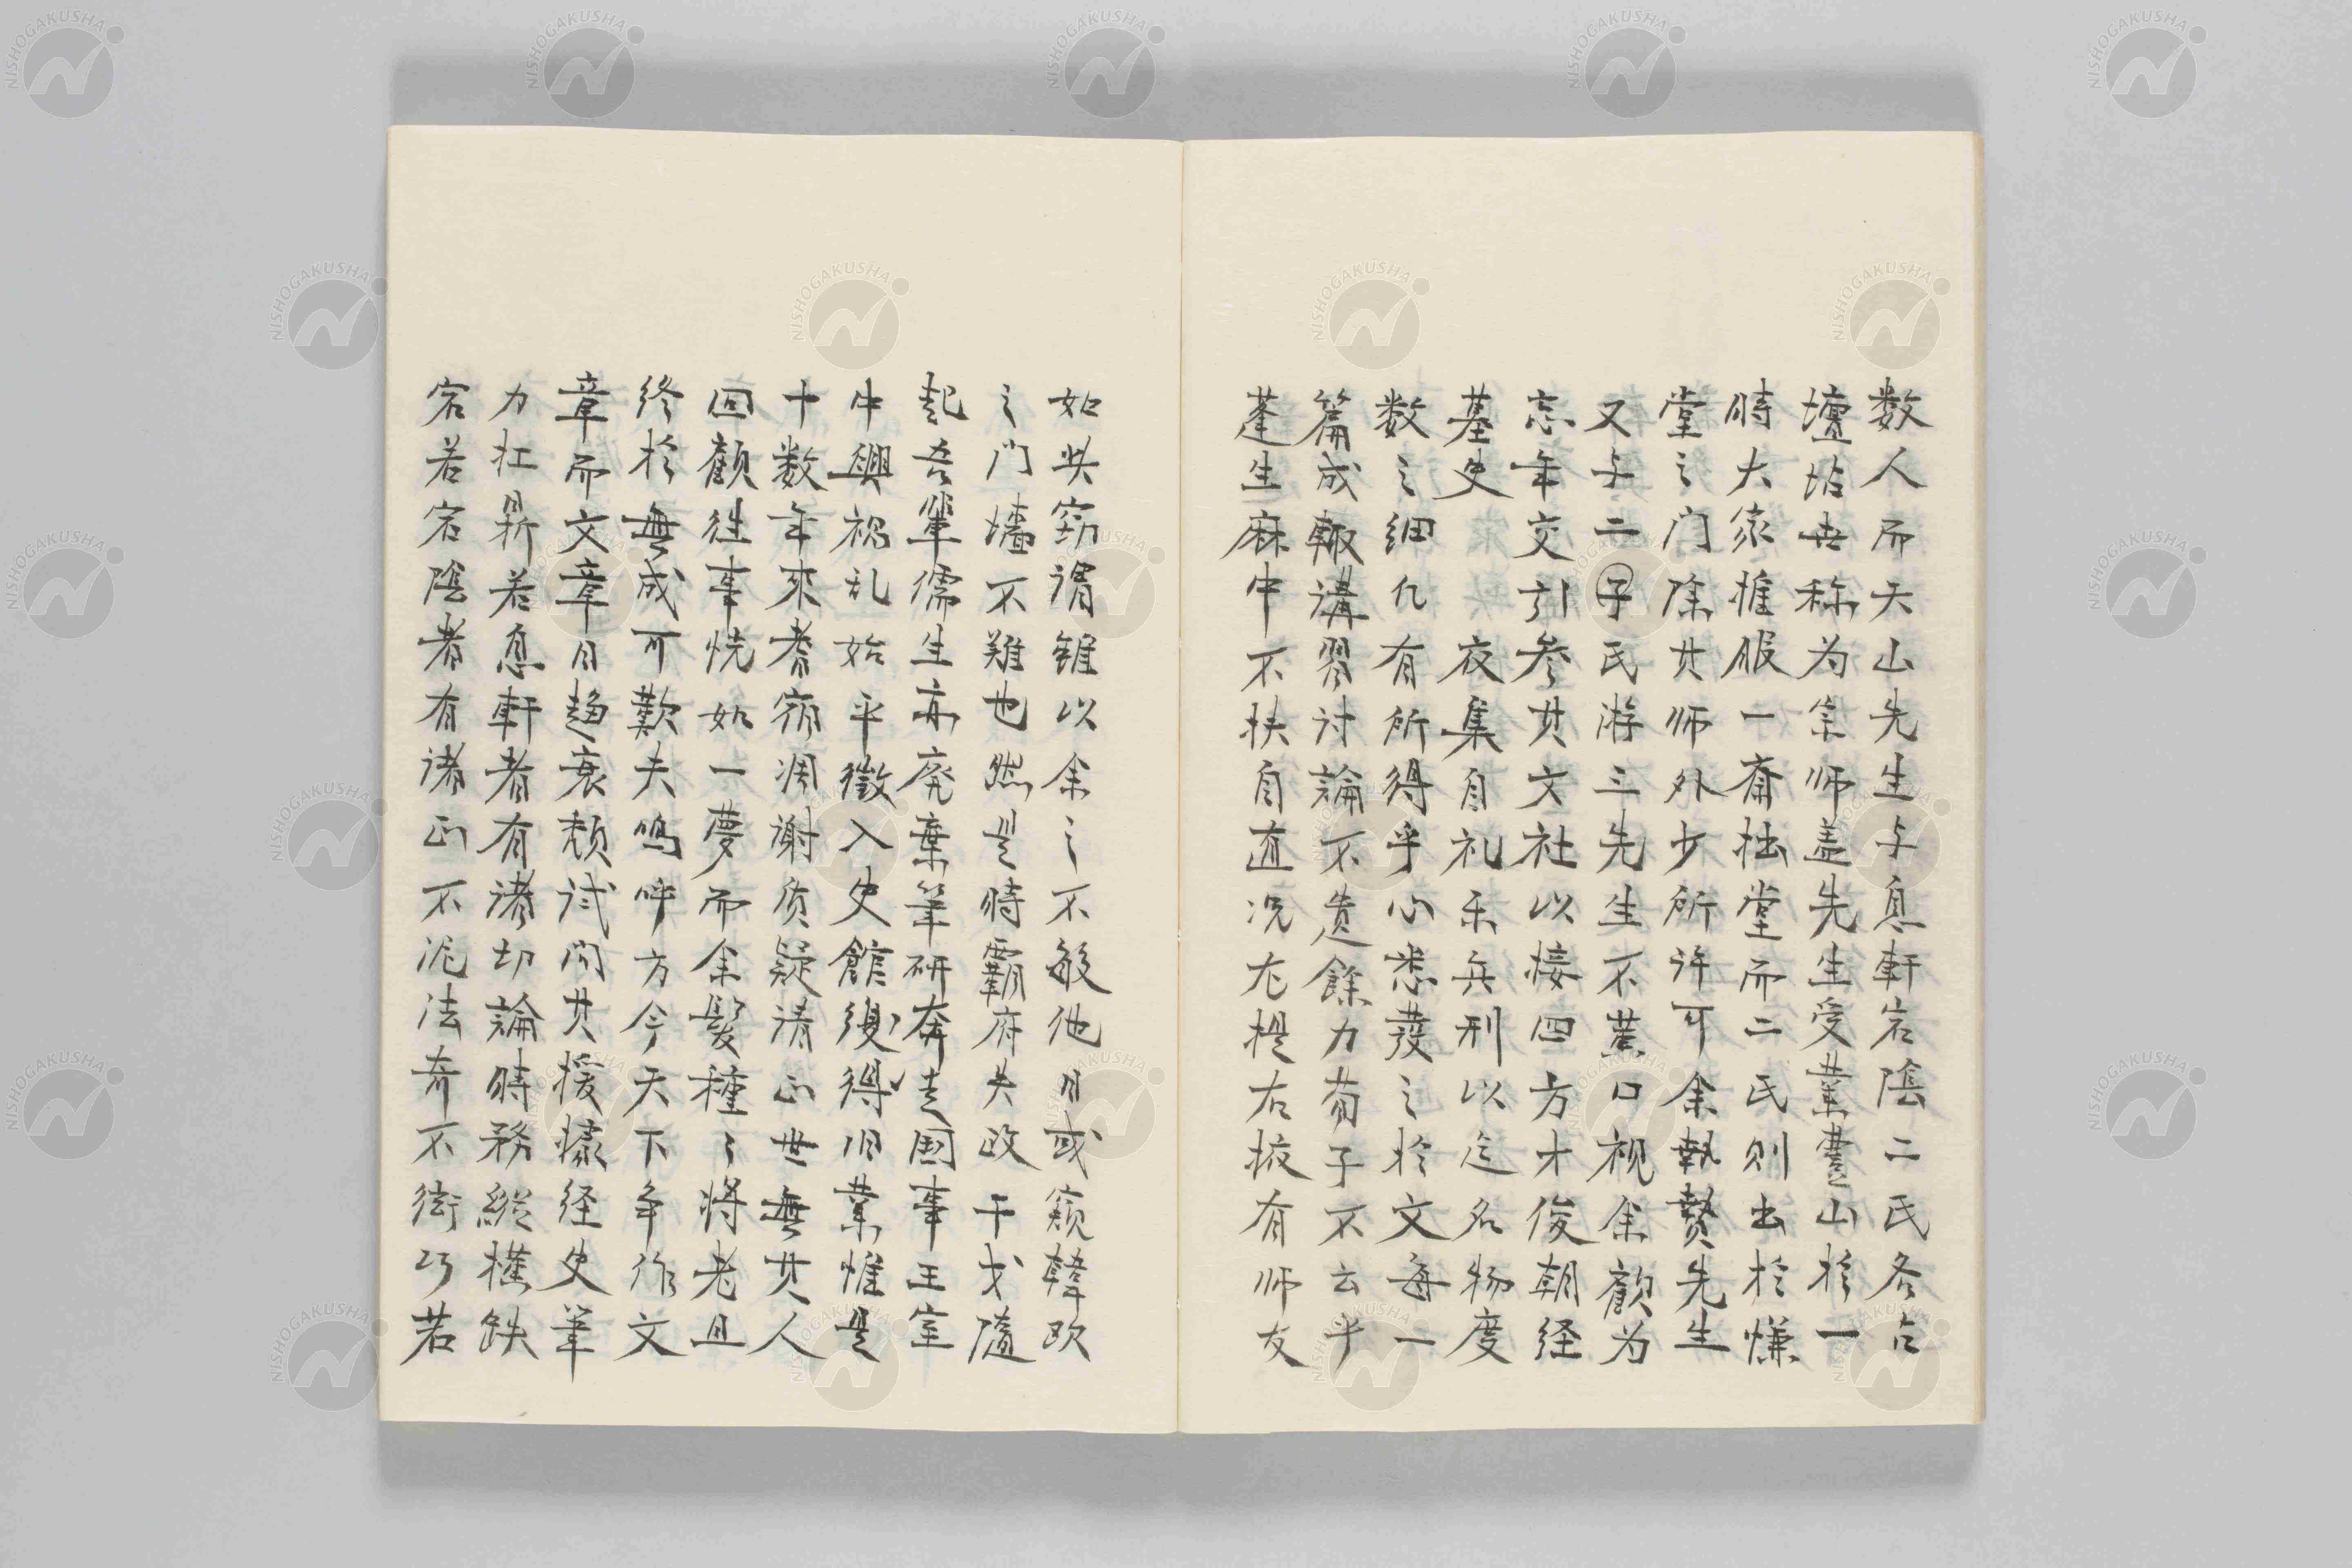 数人而天山先生与息軒宕陰二氏各占
壇坫毋称为宗师盖先生受業壹山於一
時大家惟服一斎拙堂而二氏則出於慊
堂之门除其师外少所許可余執贄先生
又与二子民游三先生不蔑口视余顧为
忘年交引参其文社以接四方才俊朝経
墓史　　夜集自礼乐兵刑以迄名物度
数之細仡有所得乎心悉發之於文每一
篇成輙講習討論不遗餘力荀子不云乎
蓬生麻中不扶自直况左提右掖有师友
如此窃谓錐以余之不敏他日或窺韓欧
之门墻不難也然是時霸府失政干戈隨
起吾輩儒生亦廃棄筆研奔走国事王室
中興祝乱始平徵入史館復得旧業惟是
十数年来耆宿凋謝质疑請正世無其人
回顧往事恍如一夢而余髪種〻将老且
终於無成可歎夫嗚呼方今天下争作文
章而文章日趋衰頹试问其援據経史筆
力壮昇若息軒者有諸切論時務縦横缺
宕若宕陰者有諸正不泥法奇不衒巧若
NISHOGAKUSHA